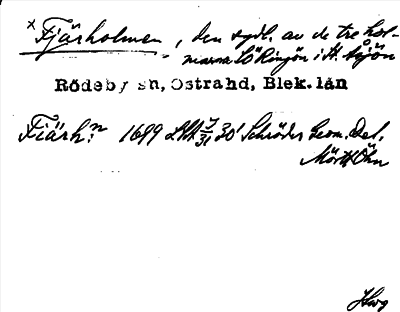 x Fjärholmen, den sydl. av de tre hol-
marna SÖ Ringön i St. Asjön
Rödeby sn, Östrahd, Blek. län
Fiärh:n 1699 LSA 7/31 30' Schröder Geom. Del.
Mört Öhn
Hwg